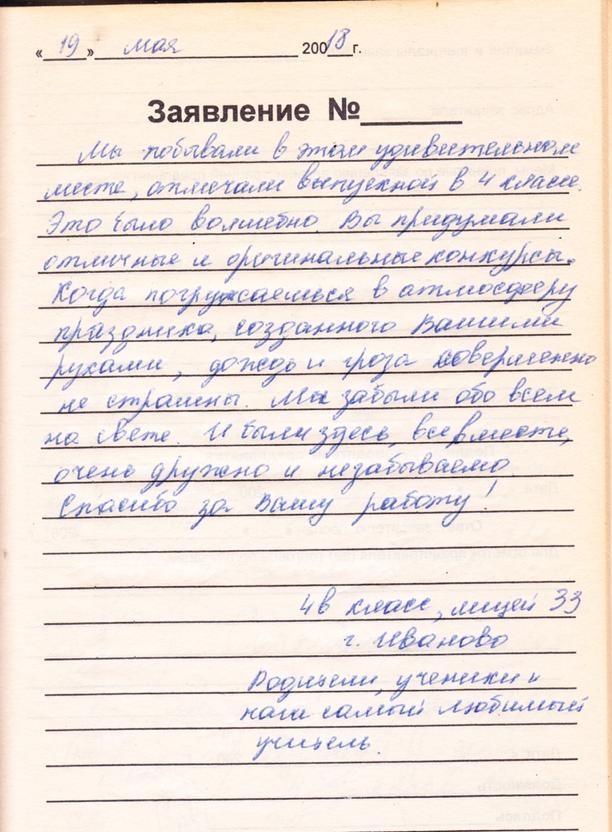 « 19 » мая 2018 г.
Заявление №
Мы побывали в этом удивительном
месте, отмечали выпускной в 4 классе.
Это было волшебно. Вы придумали
отличные и оригинальные конкурсы.
Когда погружаешься в атмосферу
праздника, созданного Вашими
руками, дождь и гроза совершенно
не страшны. Мы забыли обо всем
на свете. И были здесь, все вместе,
очень дружно и незабываемо
Спасибо за Вашу работу!
4в класс, лицей 33
г. Иваново
Родители, ученики и
наш самый любимый
учитель.